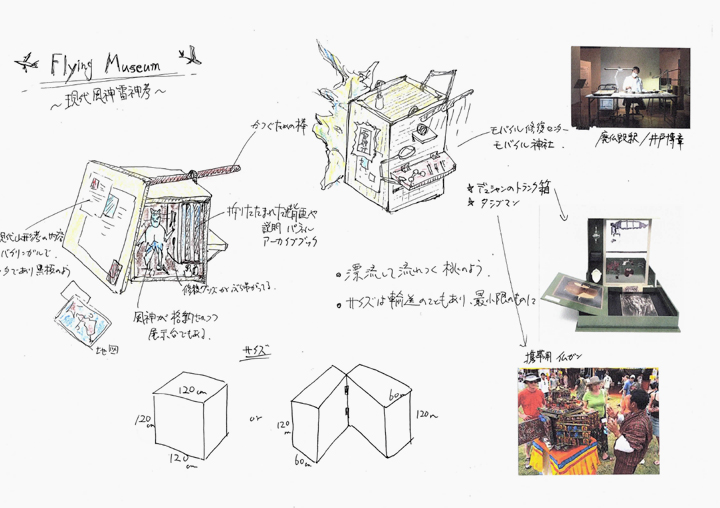 Flying Museum
～現代風神雷神考～
かつぐための棒
モバイル修復センター
モバイル神社
廃仏毀釈／井戸博章
折りたたまれた背面や
説明パネル
アーカイブブック
★デュシャンのトランク箱
★タシゴマン
バイリンガルで
修復グッズがぶら下がってる
風神が格納されつつ
展示台でもある
地図
●漂流して流れつく桃のよう
●サイズは輸送のこともあり、最小限のものに
携帯用
サイズ
120cm
120cm
120cm
or
60cm
120cm
60cm
120cm